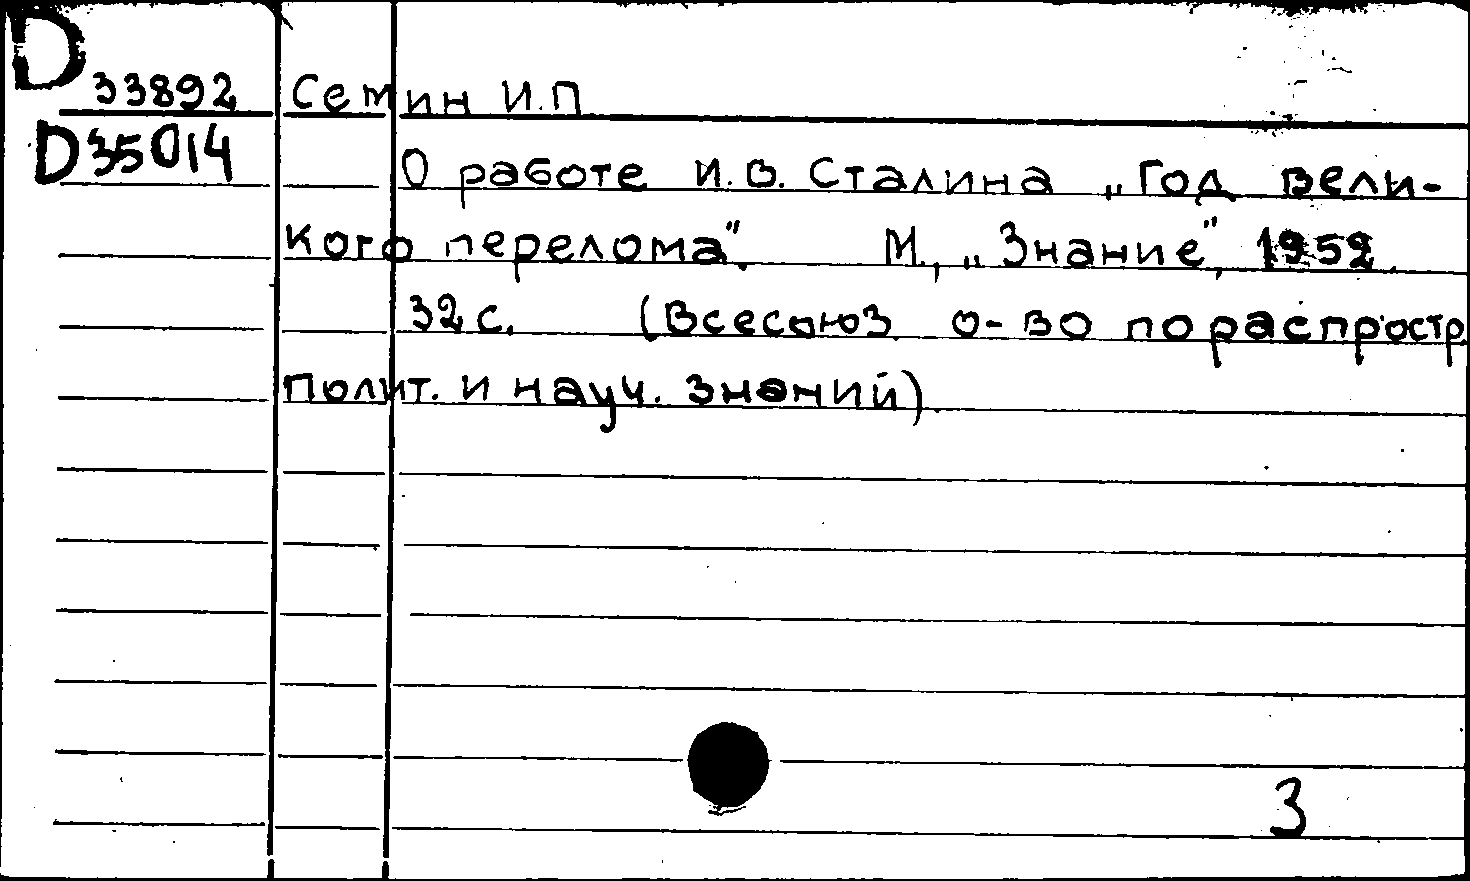 D 33892 Семин И.П
D35014
О работе И.В. Сталина „Год вели-
кого перелома". М., „Знание", 1952.
32 с. (Всесоюз. о-во по распростр.
полит. и науч. знаний)
3